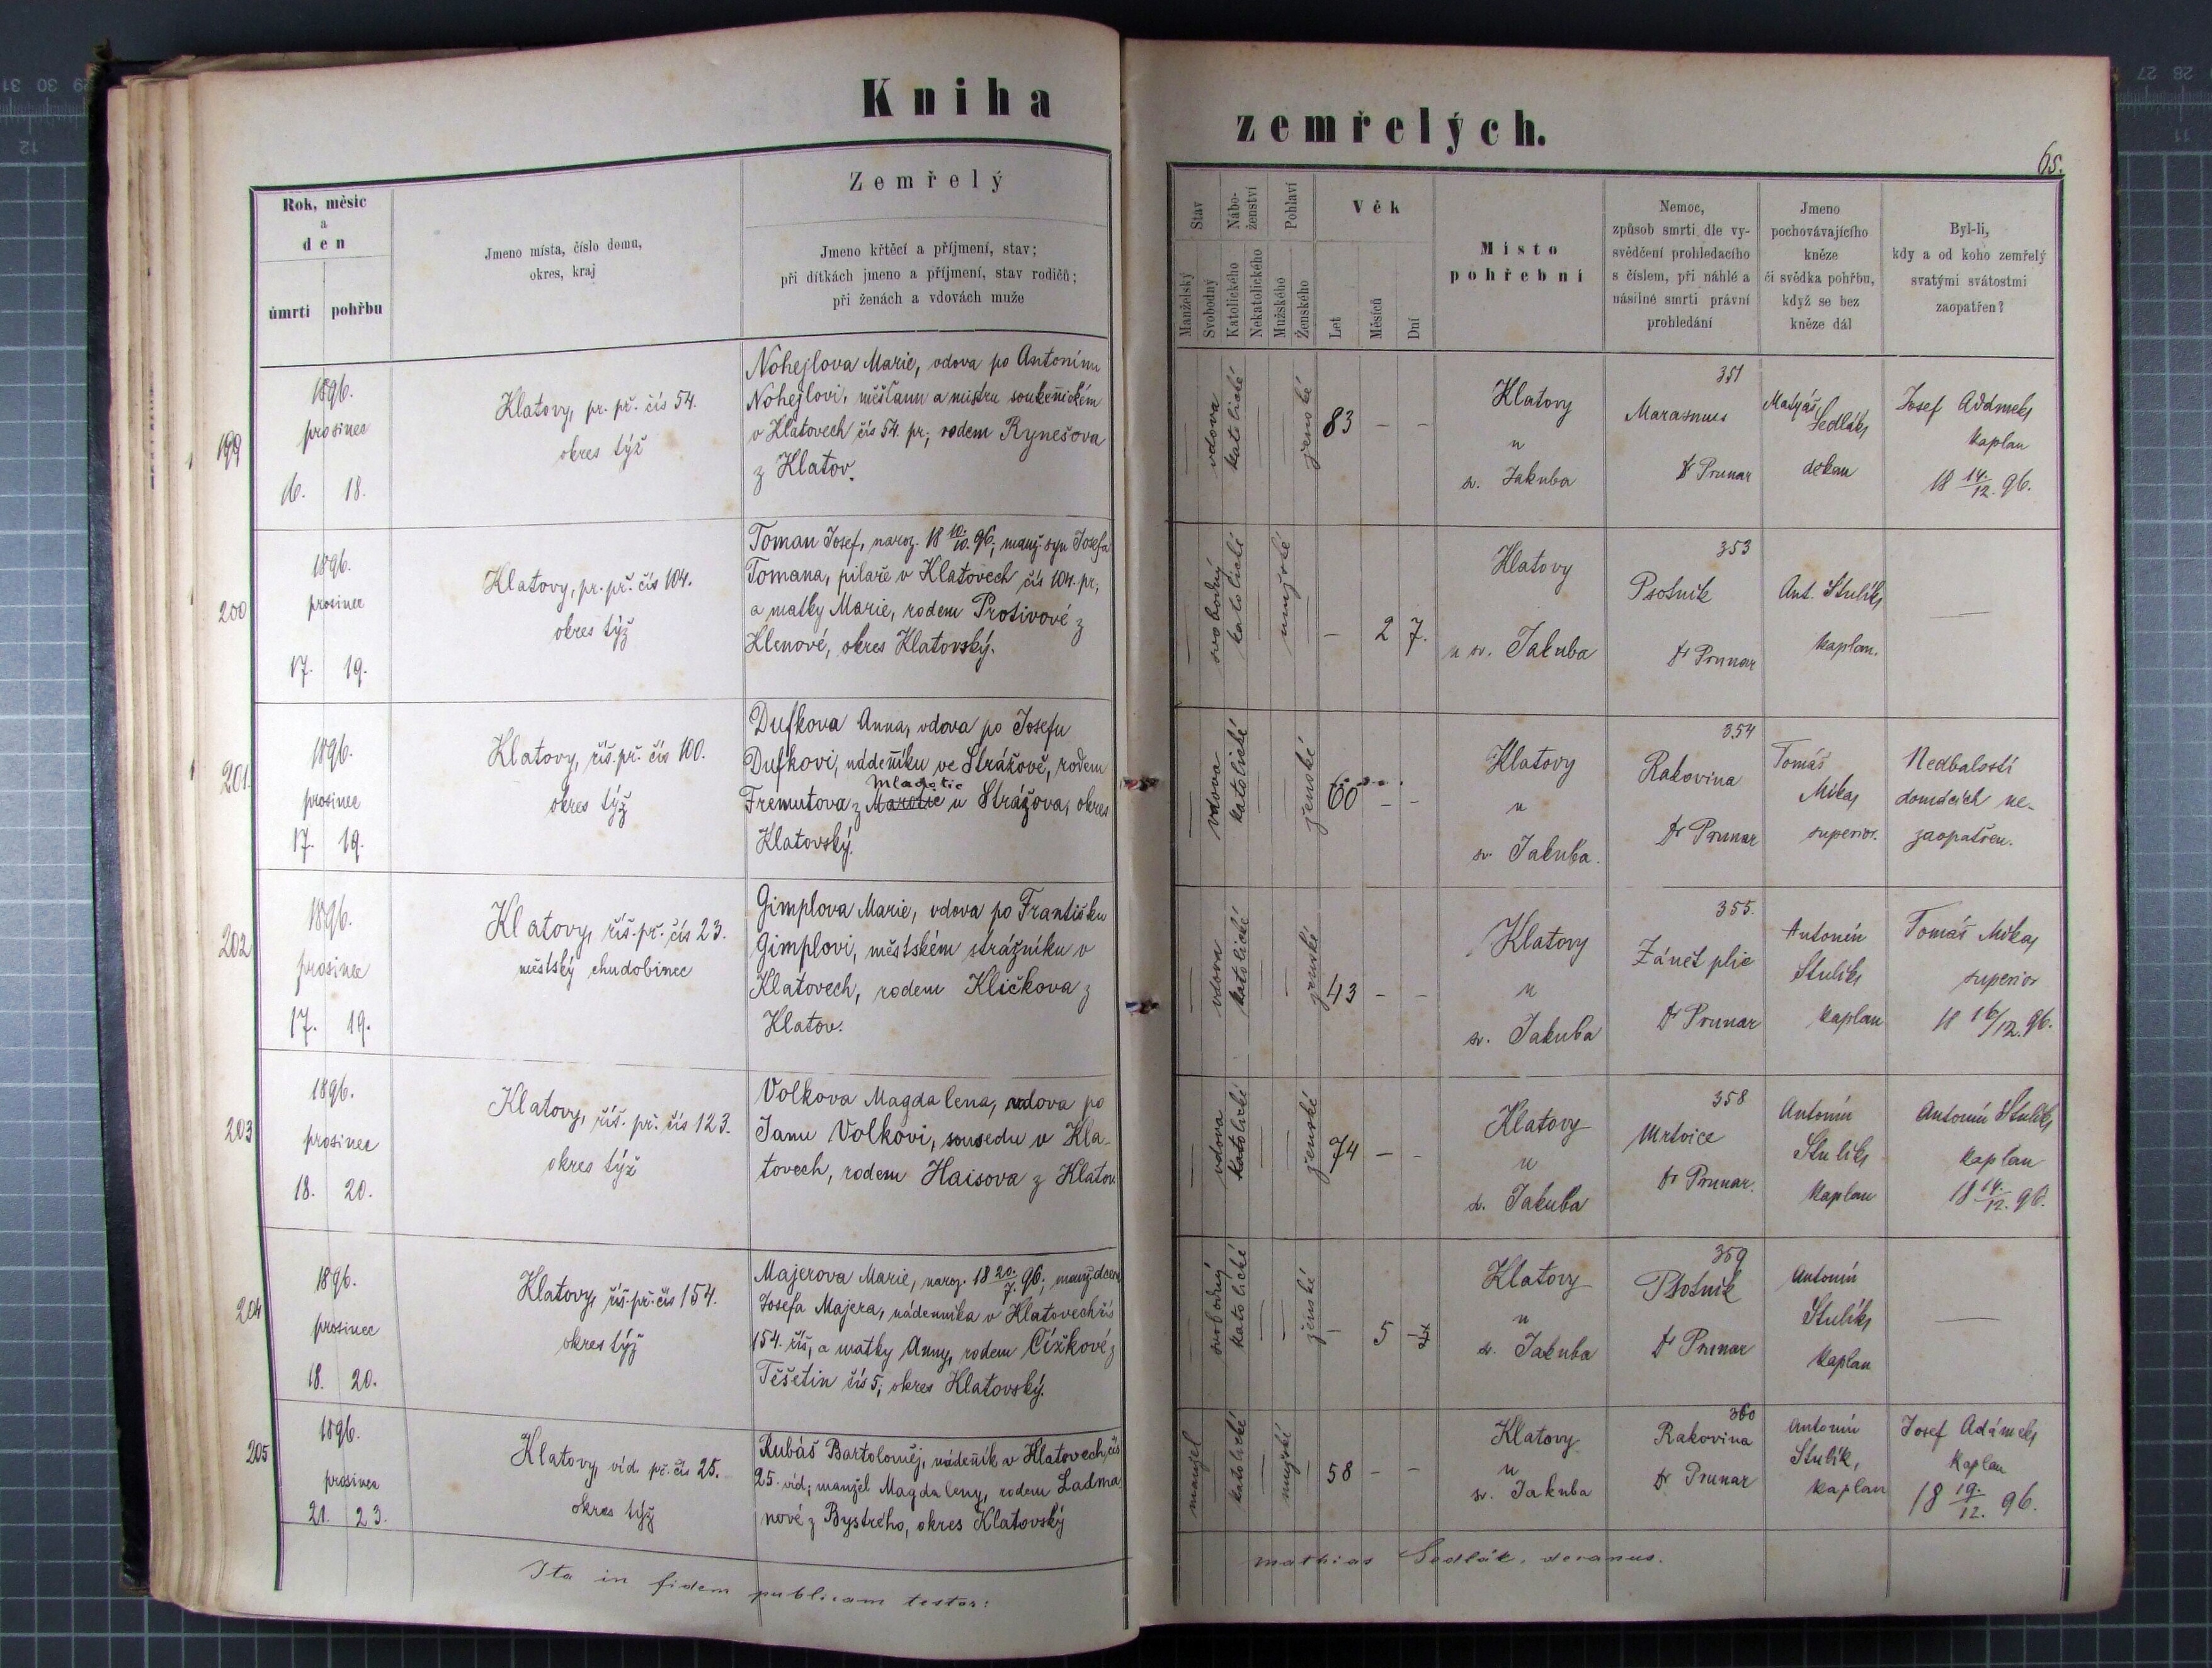 Kniha
zemřelých.
65.
Rok, měsíc
a
den
úmrtí pohřbu
Jmeno místa, číslo domu,
okres, kraj
Zemřelý
Jmeno křtěcí a příjmení, stav;
při dítkách jmeno a příjmení, stav rodičů;
při ženách a vdovách muže
Stav
Manželský
Svobodný
Nábo-
ženství
Katolického
Nekatolického
Pohlaví
Mužského
Ženského
Věk
Let
Měsíců
Dní
Místo
pohřební
Nemoc,
způsob smrti dle vy-
svědčení prohledacího
s číslem, při náhlé a
násilné smrti právní
prohledání
Jmeno
pochovávajícího
kněze
či svědka pohřbu,
když se bez
kněze dál
Byl-li,
kdy a od koho zemřelý
svatými svátostmi
zaopatřen?
199
1896.
prosinec
16. 18.
Klatovy, pr. př. čís 54.
okres týž
Nohejlova Marie, vdova po Antonínu
Nohejlovi, měšťanu a mistru soukeňickém
v Klatovech čís 54. pr., rodem Rynešova
z Klatov.
vdova
katolické
ženské
83 – –
Klatovy
u
sv. Jakuba
351
Marasmus
Dr Prunar
Matyáš
Sedlák
děkan
Josef Adámek
kaplan
18 14./12. 96.
200
1896.
prosinec
17. 19.
Klatovy, pr. př. čís 104.
okres týž
Toman Josef, naroz. 18 10./10. 96; manž. syn Josefa
Tomana, pilaře v Klatovech čís 104. pr.,
a matky Marie, rodem Protivové z
Klenové, okres Klatovský.
svobodný
katolické
mužské
– 2 7.
Klatovy
u sv. Jakuba
353
Psotník
Dr Prunar
Ant. Stulík
kaplan.
—
201
1896.
prosinec
17. 19.
Klatovy, říš. př. čís 100.
okres týž
Dufkova Anna, vdova po Josefu
Dufkovi, nádeníku ve Strážově, rodem
Mladotic
Fremutova z Marotic u Strážova, okres
Klatovský.
vdova
katolické
ženské
60 – –
Klatovy
u
sv. Jakuba.
354
Rakovina
Dr Prunar
Tomáš
Mika
superior.
Nedbalostí
domácích ne-
zaopatřen.
202
1896.
prosinec
17. 19.
Klatovy, říš. př. čís 23.
městský chudobinec
Gimplova Marie, vdova po Františku
Gimplovi, městském strážníku v
Klatovech, rodem Kličkova z
Klatov.
vdova
katolické
ženské
43 – –
Klatovy
u
sv. Jakuba
355.
Zánět plic
Dr Prunar
Antonín
Stulík
kaplan
Tomáš Mika
superior
18 16/12. 96.
203
1896.
prosinec
18. 20.
Klatovy, říš. př. čís 123.
okres týž
Volkova Magdalena, vdova po
Janu Volkovi, sousedu v Kla-
tovech, rodem Haisova z Klatov.
vdova
katolické
ženské
74 – –
Klatovy
u
sv. Jakuba
358
Mrtvice
Dr Prunar.
Antonín
Stulík
kaplan
Antonín Stulík
kaplan
18 14./12. 96.
204
1896.
prosinec
18. 20.
Klatovy, říš. př. čís 154.
okres týž
Majerova Marie, naroz. 18 20./7. 96; manž. dcera
Josefa Majera, nádenníka v Klatovech čís
154. říš, a matky Anny, rodem Čížkové z
Těšetin čís 5, okres Klatovský.
svobodný
katolické
ženské
– 5 –
Klatovy
u
sv. Jakuba
359
Psotník
Dr Prunar
Antonín
Stulík
kaplan
—
205
1896.
prosinec
21. 23.
Klatovy, víd. př. čís 25.
okres týž
Rubáš Bartoloměj, nádeník v Klatovech, čís
25. víd; manžel Magdaleny, rodem Ladma
nové z Bystrého, okres Klatovský
manžel
katolické
mužské
58 – –
Klatovy
u
sv. Jakuba
360
Rakovina
Dr Prunar
Antonín
Stulík,
kaplan
Josef Adámek
kaplan
18 19./12. 96.
Ita in fidem publicam testor:
Mathias Sedlák, decanus.